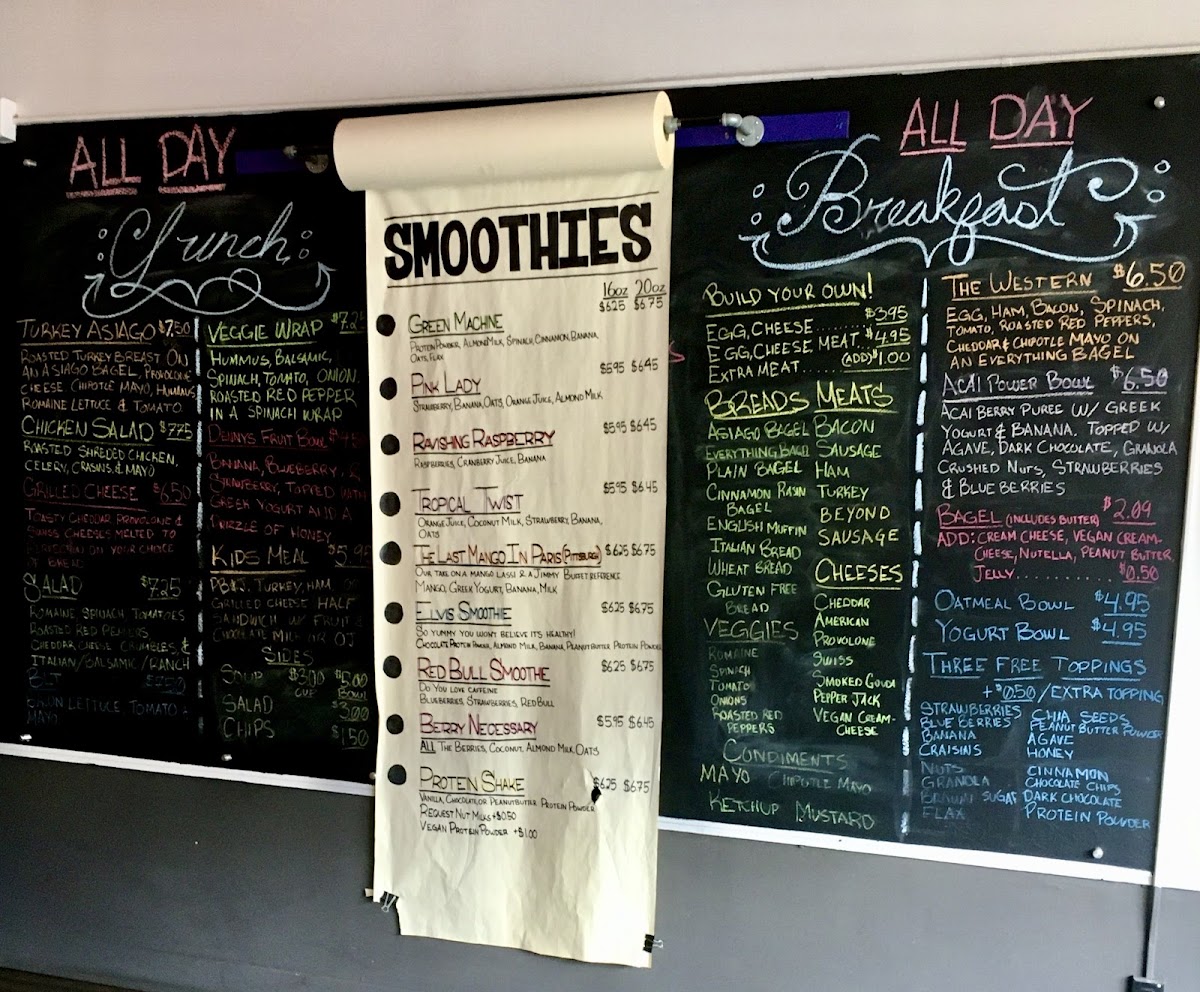 ALL DAY
Lunch
TURKEY ASIAGO $7.50
ROASTED TURKEY BREAST ON
AN ASIAGO BAGEL, PROVOLONE
CHEESE CHIPOTLE MAYO, HUMMUS
ROMAINE LETTUCE & TOMATO
CHICKEN SALAD $7.75
ROASTED SHREDED CHICKEN,
CELERY, CRASINS, & MAYO
GRILLED CHEESE $6.50
TOASTY CHEDDAR PROVOLONE &
SWISS CHEESES MELTED TO
PERFECTION ON YOUR CHOICE
OF BREAD
SALAD $7.25
ROMAINE SPINACH TOMATOES
ROASTED RED PEPPERS
CHEDDAR CHEESE CRUMBLES, &
ITALIAN/BALSAMIC/RANCH
BLT
LETTUCE TOMATO &
MAYO
VEGGIE WRAP
HUMMUS, BALSAMIC,
SPINACH, TOMATO, ONION.
ROASTED RED PEPPER
IN A SPINACH WRAP
DENNYS FRUIT BOWL
BANANA, BLUEBERRY, &
STRAWBERRY, TOPPED WITH
GREEK YOGURT AND A
DRIZZLE OF HONEY
KIDS MEAL
PB&J, TURKEY, HAM
GRILLED CHEESE HALF
SANDWICH W/ FRUIT &
CHOCOLATE MILK OR OJ
SIDES
SOUP $3.00 $5.00
CUP BOWL
SALAD $3.00
CHIPS $1.50
SMOOTHIES
16oz 20oz
$6.25 $6.75
GREEN MACHINE
PROTEIN POWDER, ALMOND MILK, SPINACH, CINNAMON, BANANA,
OATS, FLAX
$5.95 $6.45
PINK LADY
STRAWBERRY, BANANA, OATS, ORANGE JUICE, ALMOND MILK
$5.95 $6.45
RAVISHING RASPBERRY
RASPBERRIES, CRANBERRY JUICE, BANANA
$5.95 $6.45
TROPICAL TWIST
ORANGE JUICE, COCONUT MILK, STRAWBERRY, BANANA,
OATS
THE LAST MANGO IN PARIS (PITTSBURGH) $6.25 $6.75
OUR TAKE ON A MANGO LASSI & A JIMMY BUFFET REFERENCE
MANGO, GREEK YOGURT, BANANA, MILK
ELVIS SMOOTHIE $6.25 $6.75
SO YUMMY YOU WON'T BELIEVE IT'S HEALTHY!
CHOCOLATE PROTEIN POWDER, ALMOND MILK, BANANA, PEANUT BUTTER PROTEIN POWDER
RED BULL SMOOTHE $6.25 $6.75
DO YOU LOVE CAFFEINE
BLUEBERRIES, STRAWBERRIES, RED BULL
BERRY NECESSARY $5.95 $6.45
ALL THE BERRIES, COCONUT, ALMOND MILK, OATS
PROTEIN SHAKE $6.25 $6.75
VANILLA, CHOCOLATE, OR PEANUTBUTTER PROTEIN POWDER
REQUEST NUT MILKS +$0.50
VEGAN PROTEIN POWDER +$1.00
ALL DAY
Breakfast
BUILD YOUR OWN!
EGG, CHEESE ....... $3.95
EGG, CHEESE MEAT.. $4.95
EXTRA MEAT...... (ADD) $1.00
BREADS
ASIAGO BAGEL
EVERYTHING BAGEL
PLAIN BAGEL
CINNAMON RASIN
BAGEL
ENGLISH MUFFIN
ITALIAN BREAD
WHEAT BREAD
GLUTEN FREE
BREAD
VEGGIES
ROMAINE
SPINICH
TOMATO
ONIONS
ROASTED RED
PEPPERS
MEATS
BACON
SAUSAGE
HAM
TURKEY
BEYOND
SAUSAGE
CHEESES
CHEDDAR
AMERICAN
PROVOLONE
SWISS
SMOKED GOUDA
PEPPER JACK
VEGAN CREAM-
CHEESE
CONDIMENTS
MAYO CHIPOTLE MAYO
KETCHUP MUSTARD
THE WESTERN $6.50
EGG, HAM, BACON, SPINACH,
TOMATO, ROASTED RED PEPPERS,
CHEDDAR & CHIPOTLE MAYO ON
AN EVERYTHING BAGEL
ACAI POWER BOWL $6.50
ACAI BERRY PUREE W/ GREEK
YOGURT & BANANA, TOPPED W/
AGAVE, DARK CHOCOLATE, GRANOLA
CRUSHED NUTS, STRAWBERRIES
& BLUEBERRIES
BAGEL (INCLUDES BUTTER) $2.09
ADD: CREAM CHEESE, VEGAN CREAM-
CHEESE, NUTELLA, PEANUT BUTTER
JELLY........... $0.50
OATMEAL BOWL $4.95
YOGURT BOWL $4.95
THREE FREE TOPPINGS
+$0.50/EXTRA TOPPING
STRAWBERRIES
BLUEBERRIES
BANANA
CRAISINS
NUTS
GRANOLA
BROWN SUGAR
FLAX
CHIA SEEDS
PEANUT BUTTER POWDER
AGAVE
HONEY
CINNAMON
CHOCOLATE CHIPS
DARK CHOCOLATE
PROTEIN POWDER